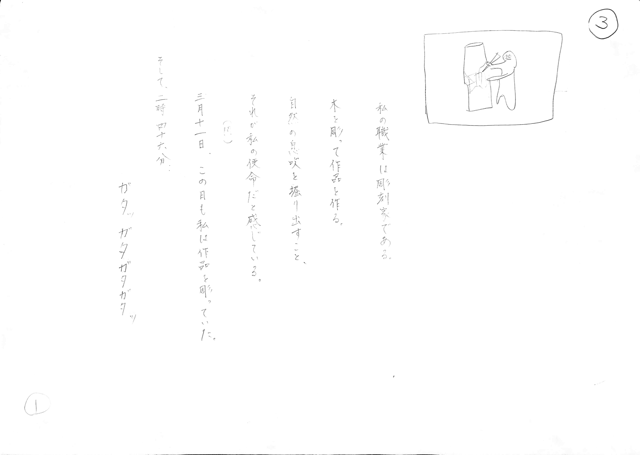 ③
私の職業は彫刻家である。
木を彫って作品を作る。
自然の息吹を掘り出すこと、
それが私の使命だと感じている。
三月十一日、この日も私は作品を彫っていた。
そして、二時四十六分、
ガタッ ガタガタガタッ
①